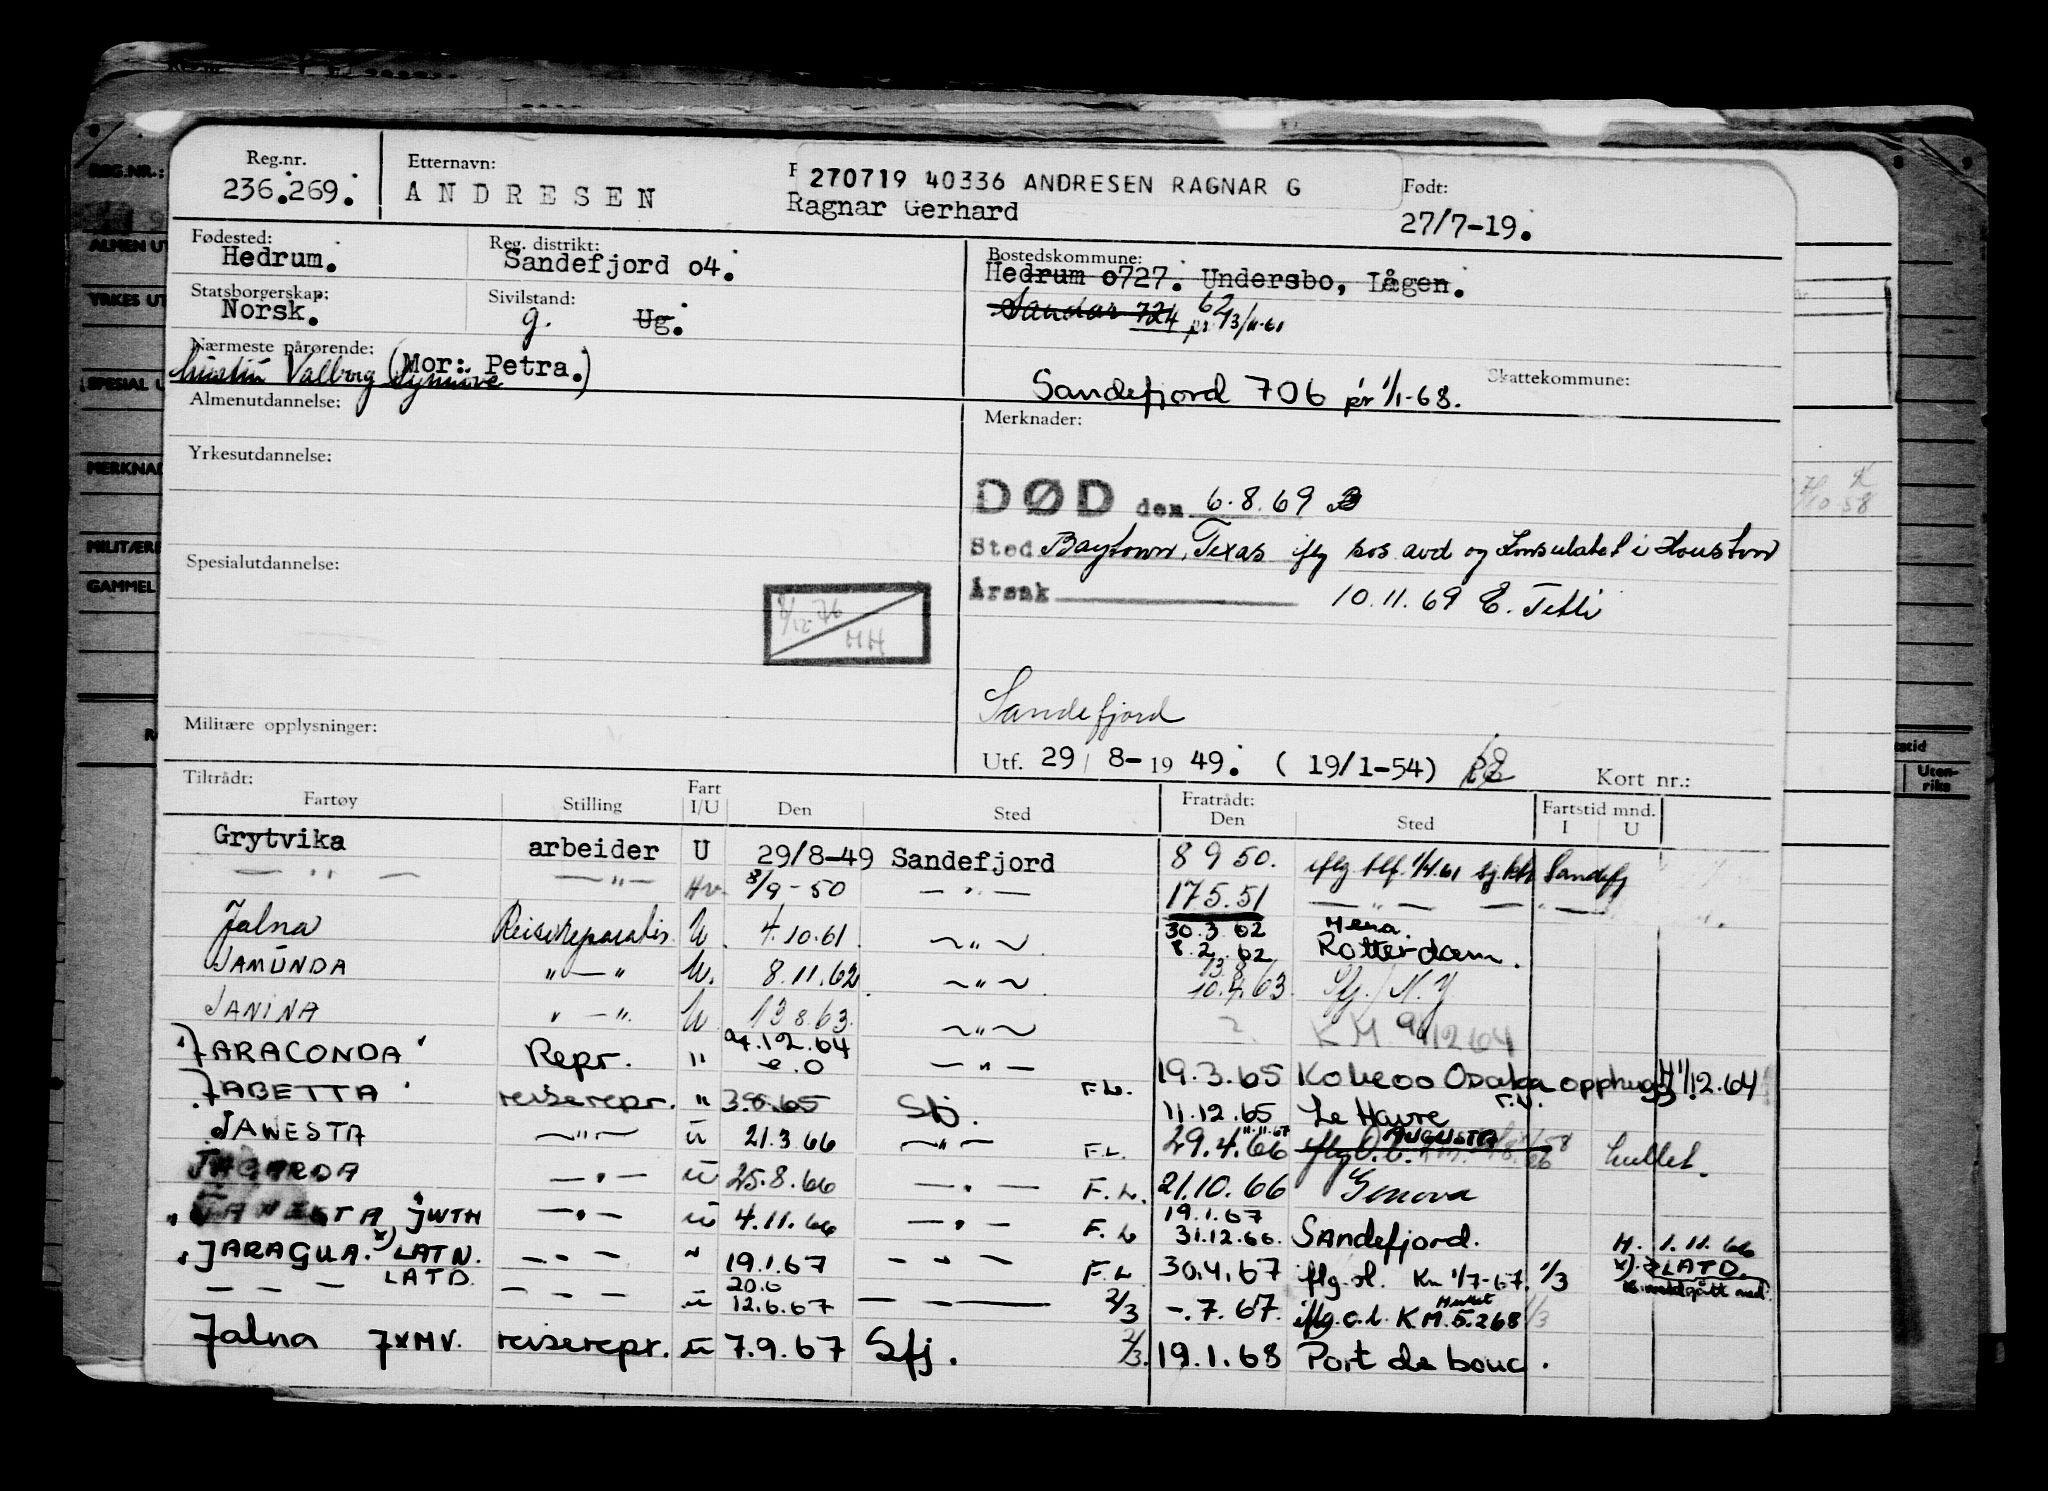 Reg.nr.
236.269.
Etternavn:
ANDRESEN
270719 40336 ANDRESEN RAGNAR G
Ragnar Gerhard
Født:
27/7-19.
Fødested:
Hedrum.
Reg. distrikt:
Sandefjord o4.
Bostedskommune:
Hedrum o727. Undersbo, Lågen.
Sandar 724 pr. 13/11-61
62
Statsborgerskap:
Norsk.
Sivilstand:
g. Ug.
Nærmeste pårørende:
Valborg Synnøve (Mor: Petra.)
Sandefjord 706 pr 1/1-68.
Skattekommune:
Almenutdannelse:
Merknader:
Yrkesutdannelse:
DØD den 6.8.69
Sted Baytown, Texas iflg sos avd og Konsulatet i Houston
Årsak 10.11.69 E.
Spesialutdannelse:
HH
Sandefjord
Militære opplysninger:
Utf. 29/ 8-19 49. ( 19/1-54)
Kort nr.:
Tiltrådt:
Fartøy Stilling Fart I/U Den Sted Fratrådt: Den Sted Fartstid mnd. I U
Grytvika arbeider U 29/8-49 Sandefjord 8 9 50. iflg tlf. 1/4.61 Sandefj
— " — — " — Hv. 8/9-50 — " — 17.5.51 — " — — " —
Jalna Reisereparatør U. 4.10.61. ~ " ~ 30.3.62
8.2.62 Rotterdam.
JAMUNDA " — " U. 8.11.62. ~ " ~ 10.4.63. Sfj. / N.Y
JANINA " — " U 13.8.63. ~ " ~ ? KM 9/12 64
"JARACONDA" Repr. " — " — 19.3.65 Kobe oo Osaka opphugg 12.64
JABETTA reiserepr. " 3.8.65 Sfj. F.L. 11.12.65 Le Havre
JAWESTA ~ " ~ u 21.3.66 ~ " — F.L. 29.4.66 AUGUSTA
JAGARDA — " — u 25.8.66 — " — F.L. 21.10.66 Genova
JAWESTA JWTH — " — u 4.11.66 — " — F.L. 19.1.67
31.12.66. Sandefjord. H. 1.11.66
"JARAGUA. x) LATN. — " — " 19.1.67 — " — F.L. 30.4.67 iflg. sl. Km 1/7-67. 1/3 x) LATD.
— — — LATD. — " — u 12.6.67 — — — 2/3 -.7.67. iflg. o.l. KM.5.268 1/3
Jalna JXMV. reiserepr. u 7.9.67 Sfj. 2/3. 19.1.68 Port de bouc.
REG.NR.:
MILITÆRE
GAMMEL
Uten-
riks